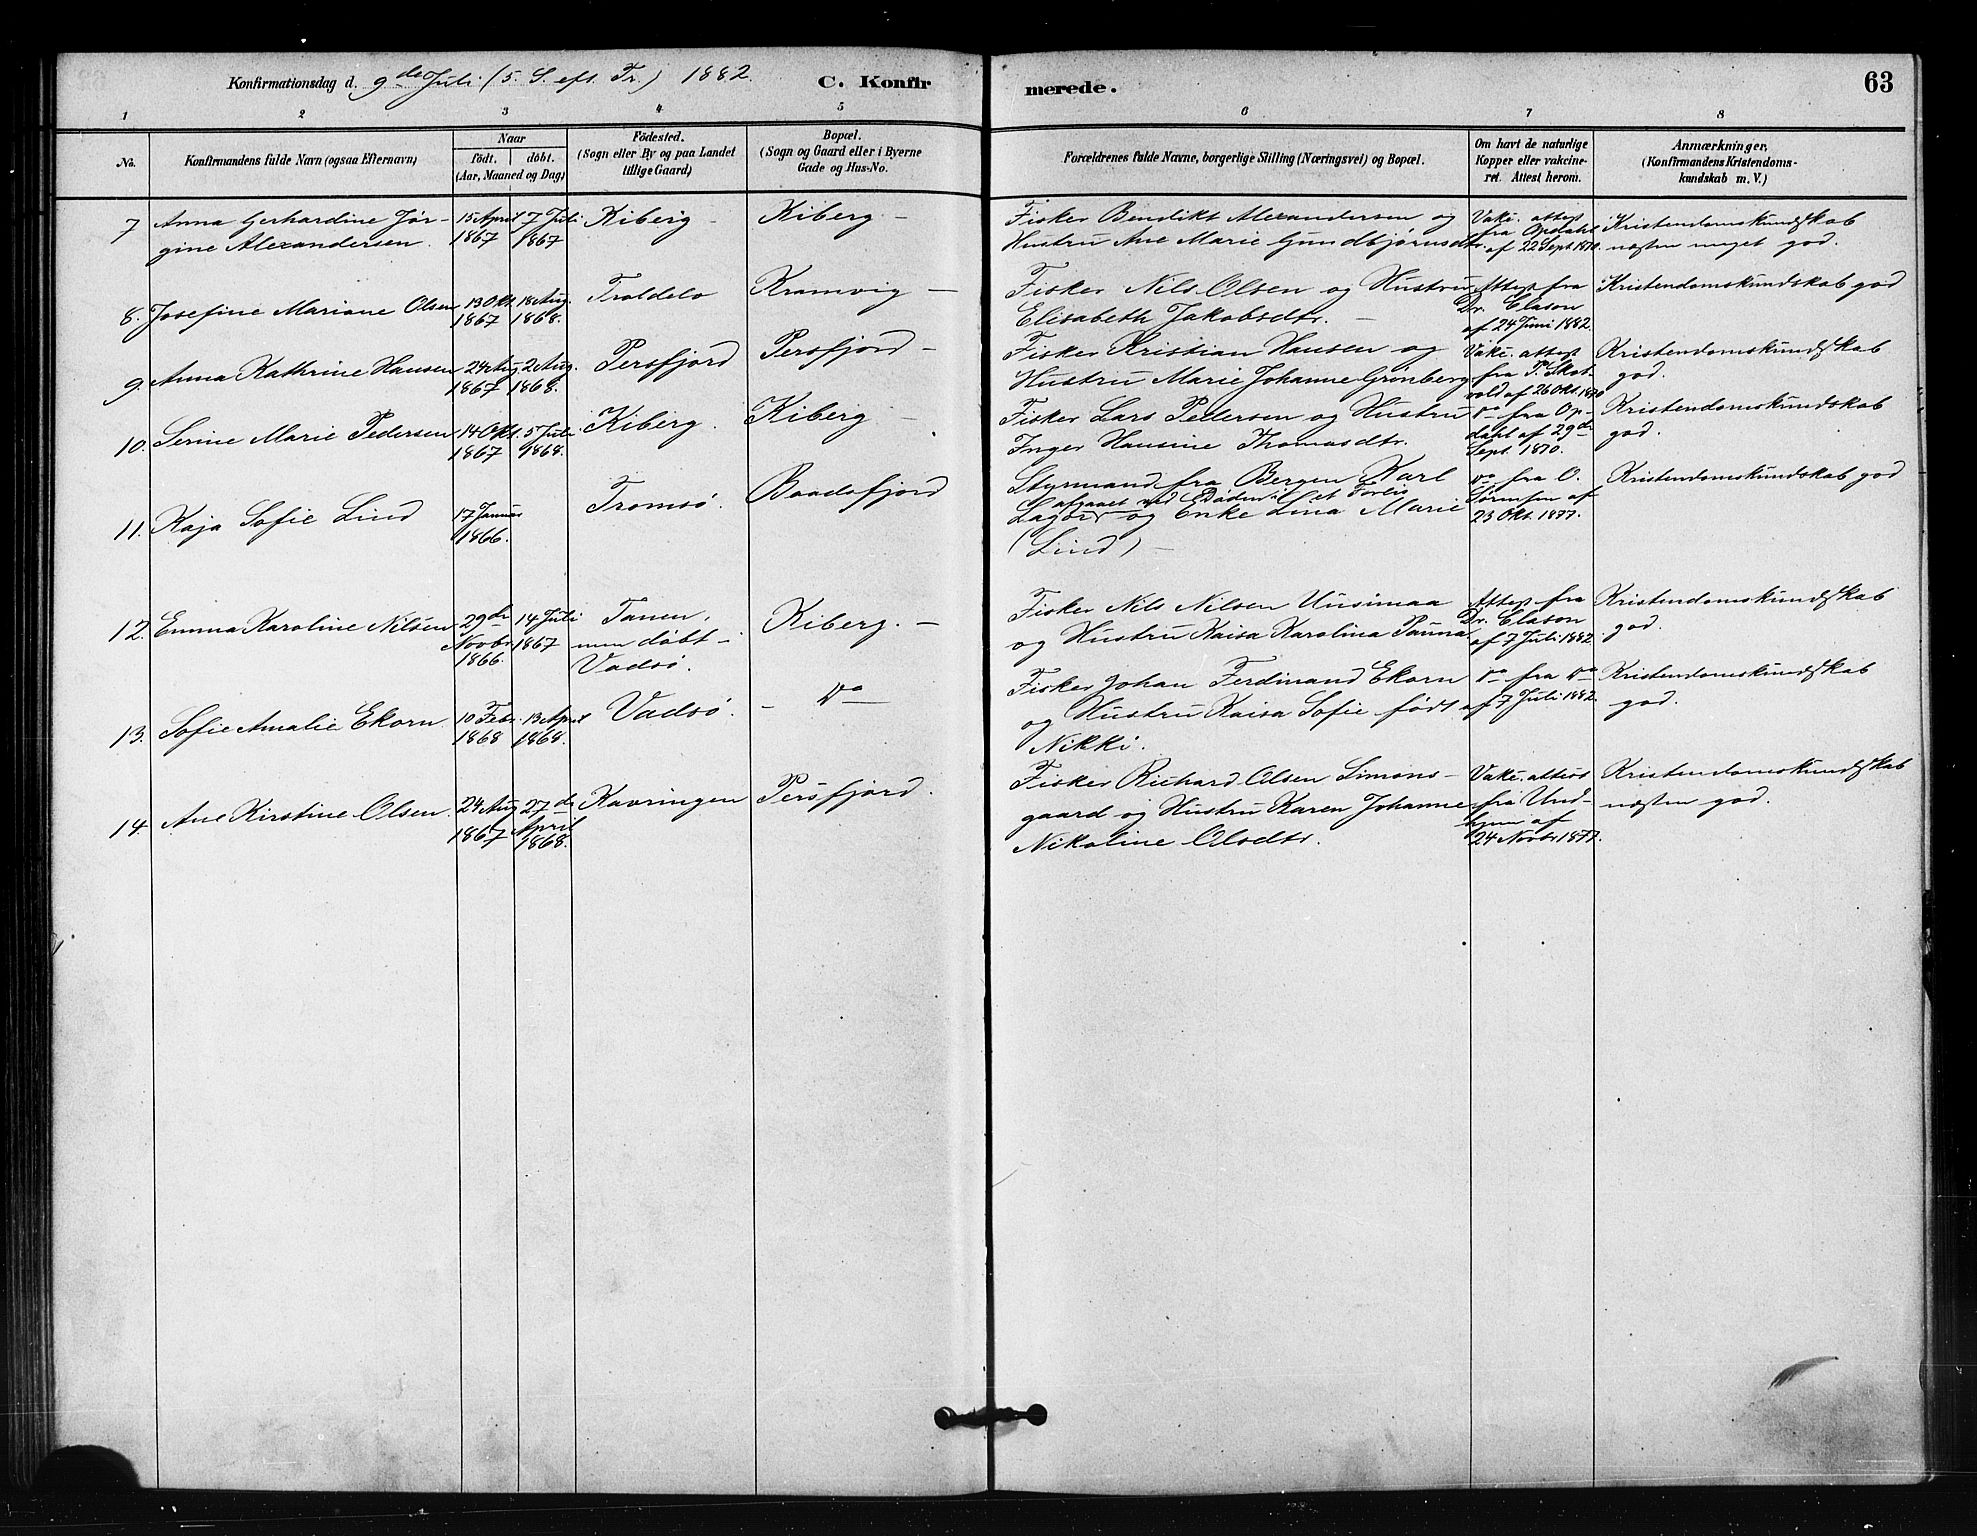 Konfirmationsdag d. 9de Juli (5. S. eft. Tr.) 1882.
C. Konfirmerede.
63
1 2 3 4 5 6 7 8
No.
Konfirmandens fulde Navn (ogsaa Efternavn)
Naar
født. døbt.
(Aar, Maaned og Dag)
Fødested.
(Sogn eller By og paa Landet
tillige Gaard)
Bopæl.
(Sogn og Gaard eller i Byerne
Gade og Hus-No.
Forældrenes fulde Navne, borgerlige Stilling (Næringsvei) og Bopæl.
Om havt de naturlige
Kopper eller vakcine-
ret. Attest herom.
Anmærkninger,
(Konfirmandens Kristendoms-
kundskab m. V.)
7 Anna Gerhardine Jør-
gine Alexandersen.
15 April
1867
7 Juli
1867
Kiberg –
Kiberg –
Fisker Bendikt Alexandersen og
Hustru Ane Marie Gundbjørnsdtr.
Vakc. attest
fra Opdahl
af 22 Sept 1870.
Kristendomskundskab
næsten meget god.
8. Josefine Mariane Olsen
13 Okt.
1867
18 Aug.
1868.
Kramvig –
Fisker Nils Olsen og Hustru
Elisabeth Jakobsdtr. –
Attest fra
Dr. Clason
af 24 Juni 1882.
Kristendomskundskab god
9 Anna Kathrine Hansen
24 Aug.
1867
2 Aug.
1868.
Persfjord
Persfjord –
Fisker Kristian Hansen og
Hustru Marie Johanne Grønberg
Vakc. attest
fra P. Skot-
vold af 26 Okt. 1870
Kristendomskundskab
god.
10. Serine Marie Pedersen
14 Okt.
1867
5 Juli
1868.
Kiberg.
Kiberg –
Fisker Lars Pedersen og Hustru
Inger Hansine Thomasdtr.
do fra Op-
dahl af 29de
Sept. 1870.
Kristendomskundskab
god.
11. Kaja Sofie Lind
17 Januar
1866.
Tromsø.
Baadsfjord
Styrmand fra Bergen Karl
afgaaet ved Døden i et Forlis
og Enke Lina Marie
(Lind) –
do fra O.
af
23 Okt. 1877.
Kristendomskundskab god
12. Emma Karoline Nilsen
29de
Novbr.
1866.
14 Juli
1867
Tanen,
men døbt i
Vadsø.
Kiberg. –
Fisker Nils Nilsen Uusimaa
og Hustru Kaisa Karolina Pauna
Attest fra
Dr. Clason
af 7 Juli 1882
Kristendomskundskab
god.
13. Sofie Amalie Ekorn
10 Febr.
1868
13 April
1868.
Vadsø.
– do –
Fisker Johan Ferdinand Ekorn
og Hustru Kaisa Sofie født
Nikki.
do fra do
af 7 Juli 1882.
Kristendomskundskab
god.
14 Ane Kirstine Olsen.
24 Aug
1867
27de
April
1868.
Kavringen
Persfjord.
Fisker Richard Olsen Simons-
gaard og Hustru Karen Johanne
Nikoline Olsdtr.
Vakc. attest
fra Und-
hjem af
24 Novbr 1877.
Kristendomskundskab
næsten god.